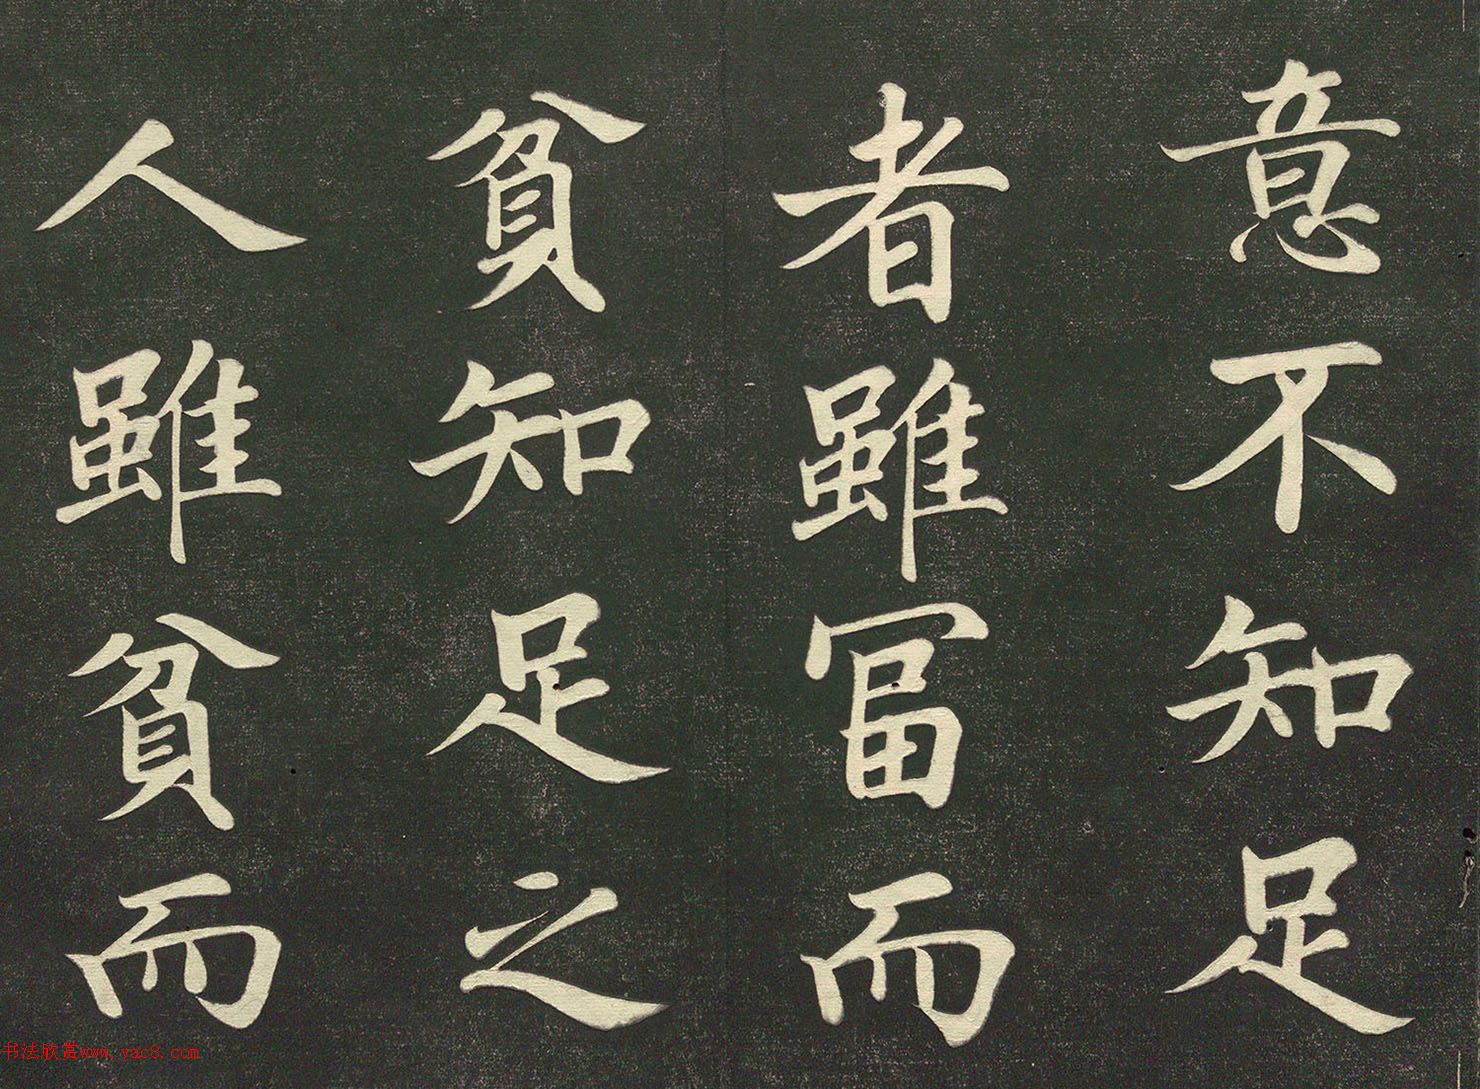 意不知足
者雖冨而
貧知足之
人雖貧而
书法欣赏www.yac8.com